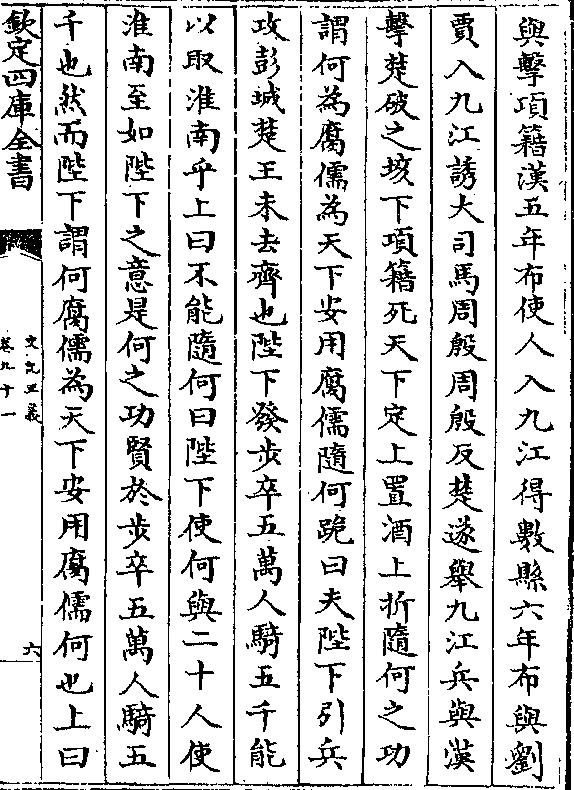 與擊項籍漢五年布使人入九江得數縣六年布與劉
賈入九江誘大司馬周殷周殷反楚遂舉九江兵與漢
擊楚破之垓下項籍死天下定上置酒上折隨何之功
謂何為腐儒為天下安用腐儒隨何跪曰夫陛下引兵
攻彭城楚王未去齊也陛下發步卒五萬人騎五千能
以取淮南乎上曰不能隨何曰陛下使何與二十人使
淮南至如陛下之意是何之功賢於步卒五萬人騎五
千也然而陛下謂何腐儒為天下安用腐儒何也上曰
欽定四庫全書
史記正義
卷九十一
六